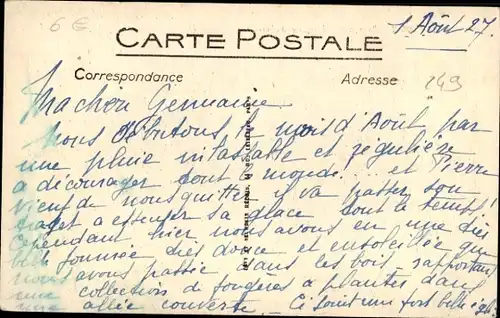 6 €
1 Août 27.
CARTE POSTALE
Correspondance
Adresse
249
Ma chère Germaine
Nous débutons le mois d'Août par
une pluie inlassable et régulière
à décourager tout le monde.... et Pierre
vient de nous quitter, il va passer son
trajet à essuyer sa glace tout le temps!
Cependant hier nous avons eu une très
belle journée très douce et ensoleillée que
nous avons passée dans les bois, rapportant
une collection de fougères à planter dans
une allée couverte. Ci joint une fort belle